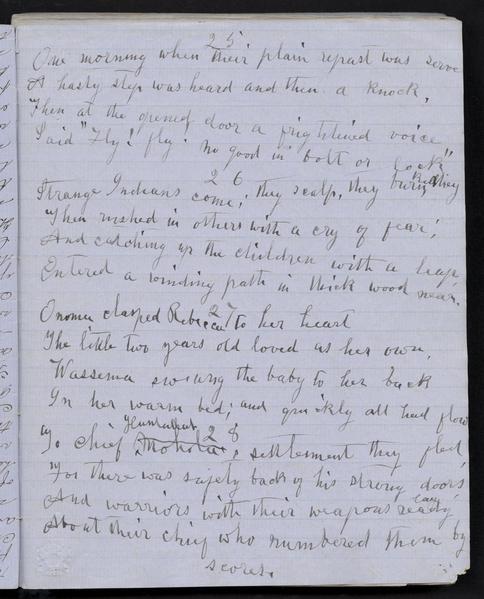 25
One morning when their plain repast was serve
A hasty step was heard and then a knock,
Then at the opened door a frightened voice
Said "Fly! fly! no good in bolt or lock"
26
Strange Indians come; they scalp, they burn, they
Then rushed in others with a cry of fear;
And catching up the children with a leap,
Entered a winding path in thick wood near.
27
Onoma clasped Rebecca to her heart
The little two years old loved as her own,
Wassema swung the baby to her back
In her warm bed; and quickly all had flow
28
To Chief Mohota's settlement they fled,
For there was safety back of his strong doors
And warriors with their weapons ready
About their chief who numbered them by
scores.